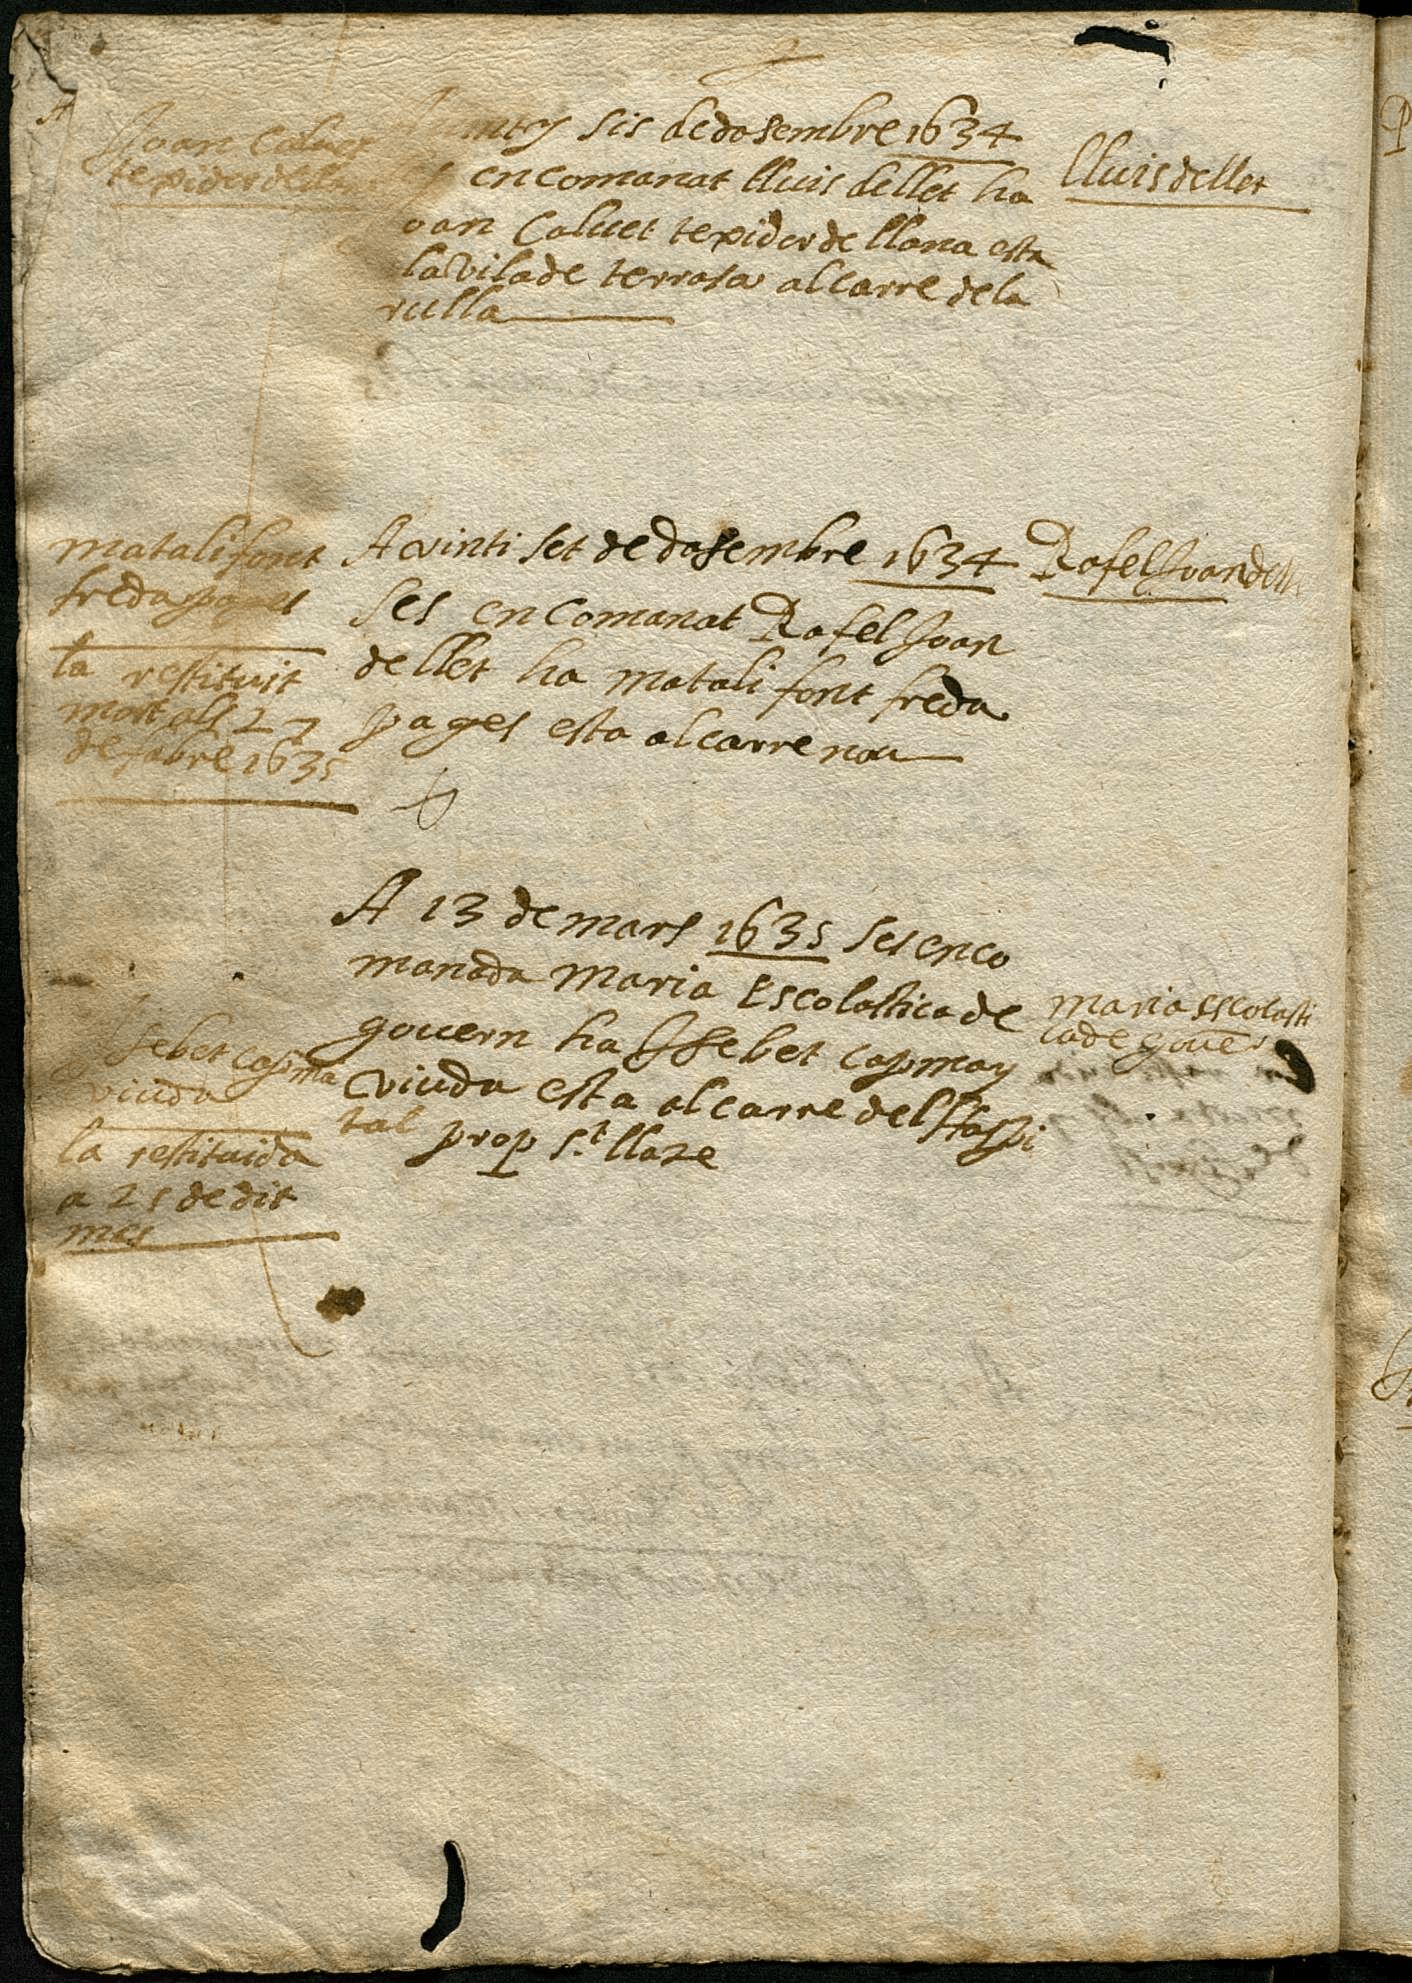 Joan Caluet
texidor de lla
A vinty sis de dosembre 1634
encomanat lluis dellet ha
Joan Caluet texidor de llana esta
la vila de terrasa al carre de la
rulla
lluis dellet
matali font
freda pages
la restituit
mort als 27
de fabre 1635
A vinti set de dasembre 1634
ses encomanat Rafel Joan
dellet ha matali font freda
pages esta al carre nou
Rafel Joan dellet
A 13 de mars 1635 ses enco
manada maria Escolastica de
gouern ha Issebet capmay
viuda esta al carre del Haspi
tal prop St. llaze
maria escolasti
ca de gouer
Issebet capma
viuda
la restituida
a 25 de dit
mes